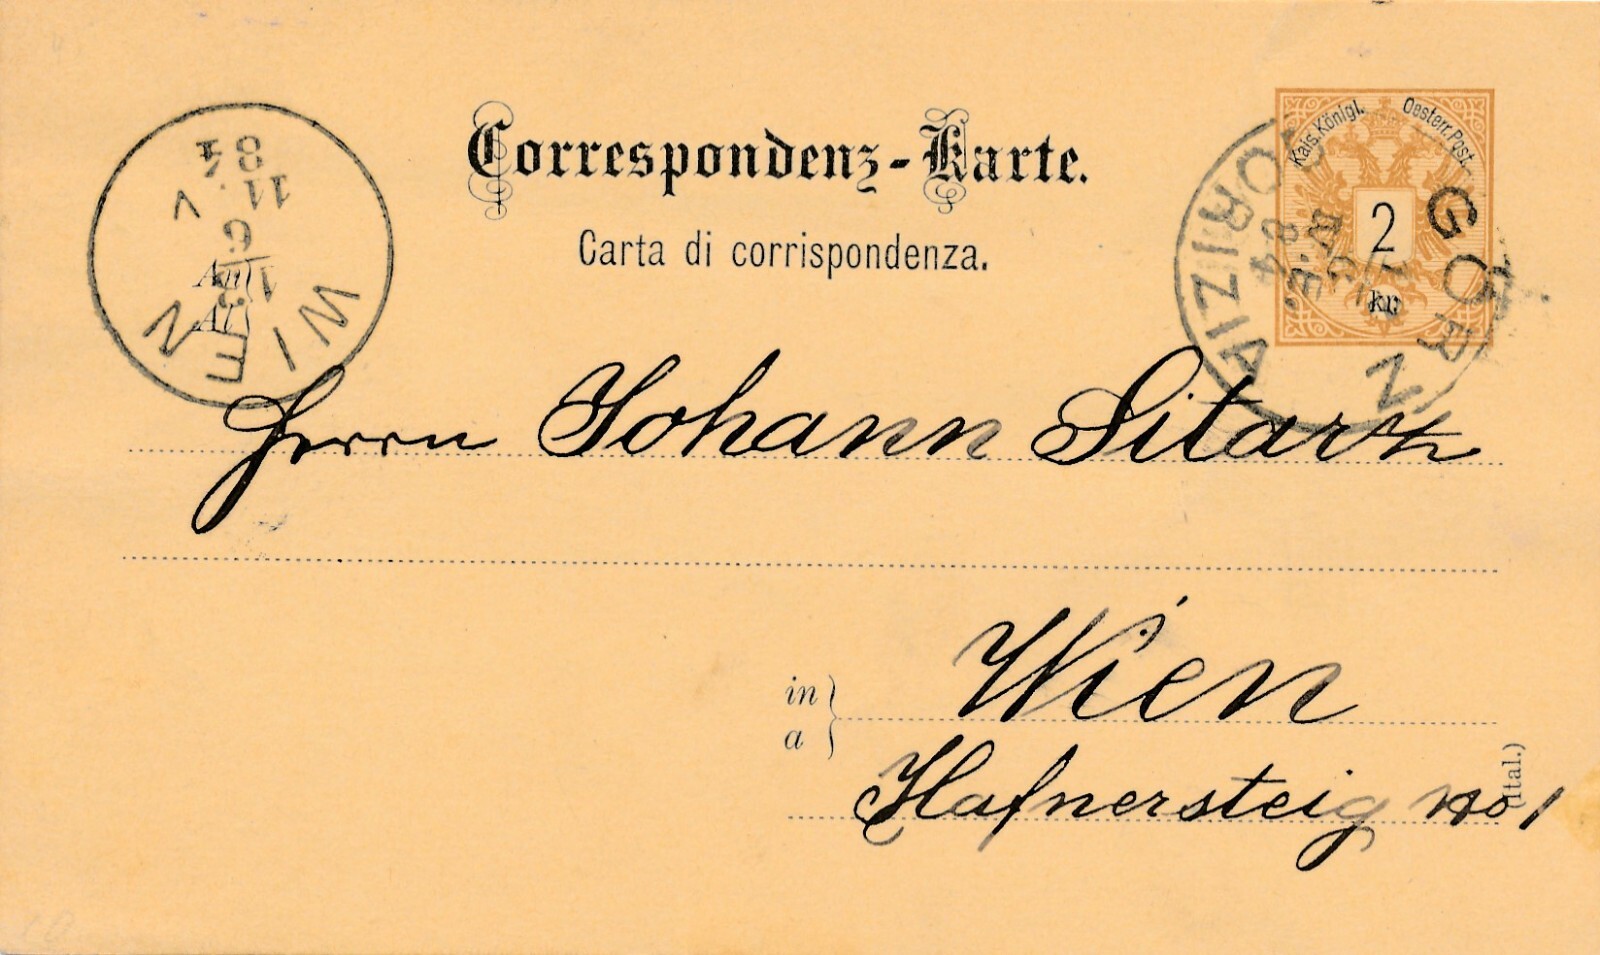 Correspondenz-Karte.
Carta di corrispondenza.
Kais. Königl. Oesterr. Post.
2
kr.
GÖRZ
GORIZIA
84
WIEN
1
6
11
84
V
An
A
Herrn Johann Sitarz
in
a
Wien
Hafnersteig No 1
(Ital.)